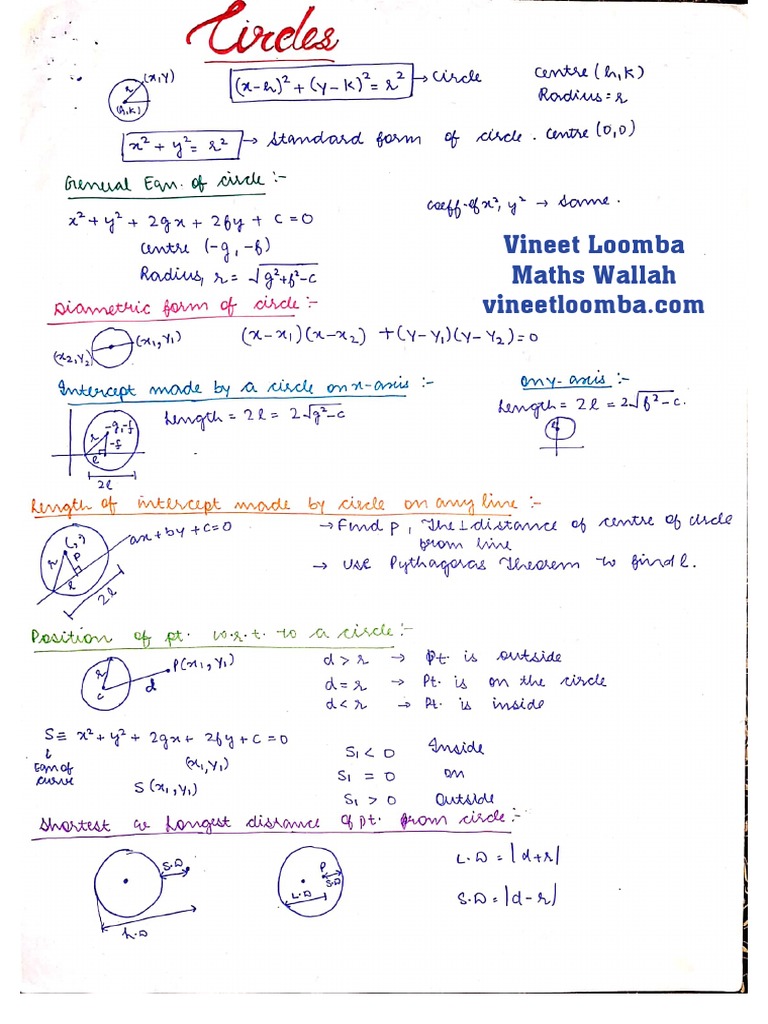 Circles
(x,y)
r
(h,k)
(x-h)² + (y-k)² = r² → circle
centre (h,k)
Radius = r
x² + y² = r² → standard form of circle. centre (0,0)
General Eqn. of circle :-
x² + y² + 2gx + 2fy + c = 0
coeff. of x², y² → same.
centre (-g, -f)
Radius, r = √g²+f²-c
Vineet Loomba
Maths Wallah
vineetloomba.com
Diametric form of circle :-
(x₁, y₁)
(x₂, y₂)
(x-x₁)(x-x₂) + (y-y₁)(y-y₂) = 0
Intercept made by a circle on x-axis :-
on y-axis :-
Length = 2l = 2√g²-c
Length = 2l = 2√f²-c.
-g,-f
r
-f
l
2l
Length of intercept made by circle on any line :-
ax + by + c = 0
(,)
r
p
l
2l
→ Find p, The ⊥ distance of centre of circle
from line
→ use Pythagoras Theorem to find l.
Position of pt. w.r.t. to a circle :-
r
c
d
P(x₁, y₁)
d > r → pt. is outside
d = r → Pt. is on the circle
d < r → Pt. is inside
S ≡ x² + y² + 2gx + 2fy + c = 0
Eqn of
curve
(x₁, y₁)
S(x₁, y₁)
S₁ < 0 Inside
S₁ = 0 on
S₁ > 0 Outside
Shortest & Longest distance of pt. from circle :-
S.D
L.D
P
S.D
L.D
L.D = |d+r|
S.D = |d-r|